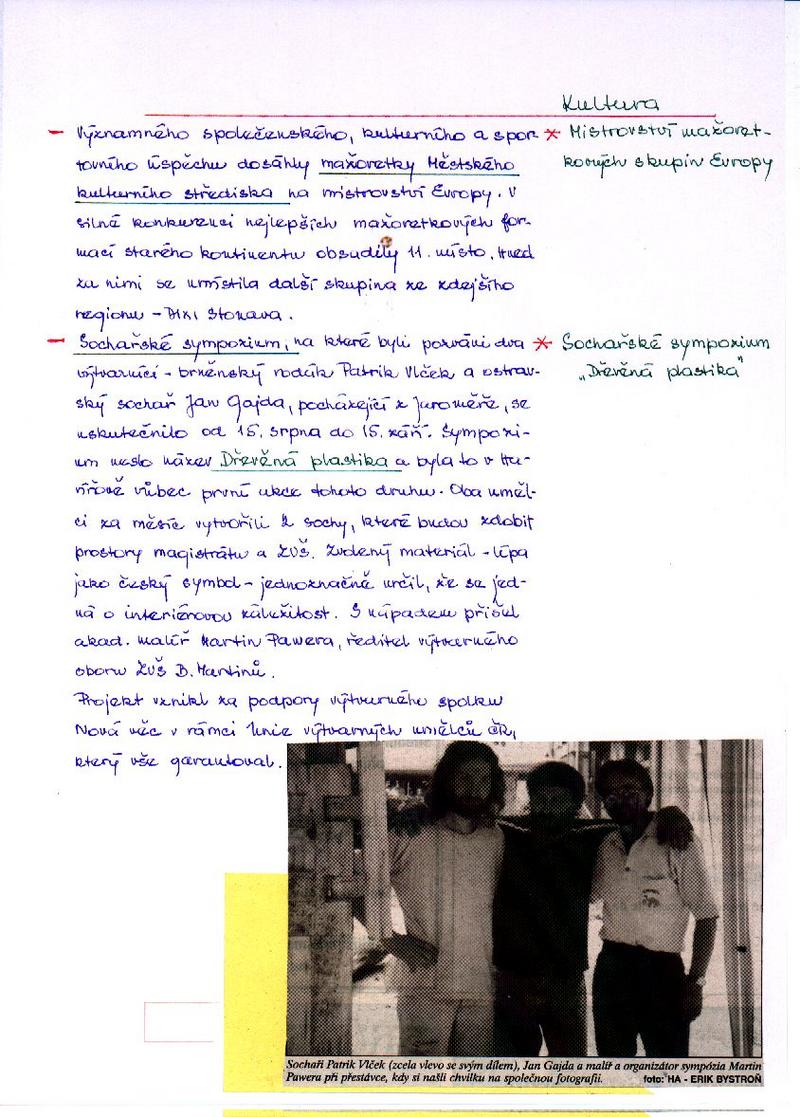 Kultura
– Významného společenského, kulturního a spor-
tovního úspěchu dosáhly mažoretky Městského
kulturního střediska na mistrovství Evropy. V
silné konkurenci nejlepších mažoretkových for-
mací starého kontinentu obsadily 11. místo. Hned
za nimi se umístila další skupina ze zdejšího
regionu – Dixi Stonava.
* Mistrovství mažoret-
kových skupin Evropy
– Sochařské symposium, na které byli pozváni dva
výtvarníci – brněnský rodák Patrik Vlček a ostrav-
ský sochař Jan Gajda, pocházející z Jaroměře, se
uskutečnilo od 15. srpna do 15. září. Sympozi-
um neslo název Dřevěná plastika a byla to v Ha-
vířově vůbec první akce tohoto druhu. Oba uměl-
ci za měsíc vytvořili 2 sochy, které budou zdobit
prostory magistrátu a ZUŠ. Zvolený materiál – lípa
jako český symbol – jednoznačně určil, že se jed-
ná o interiérovou záležitost. S nápadem přišel
akad. malíř Martin Pawera, ředitel výtvarného
oboru ZUŠ B. Martinů.
Projekt vznikl za podpory výtvarného spolku
Nová věc v rámci Unie výtvarných umělců ČR,
který vše garantoval.
* Sochařské sympozium
„Dřevěná plastika"
Sochaři Patrik Vlček (zcela vlevo se svým dílem), Jan Gajda a malíř a organizátor sympózia Martin
Pawera při přestávce, kdy si našli chvilku na společnou fotografii. foto: HA - ERIK BYSTROŇ